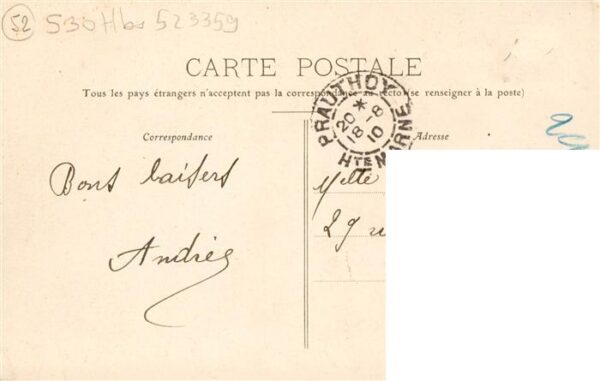 52 530 Hbs 523359
CARTE POSTALE
Tous les pays étrangers n'acceptent pas la correspondance au recto (se renseigner à la poste)
PRAUTHOY
*
20
18-8
10
HTE MARNE
Correspondance
Adresse
Bons baisers
Andrée
Melle
29